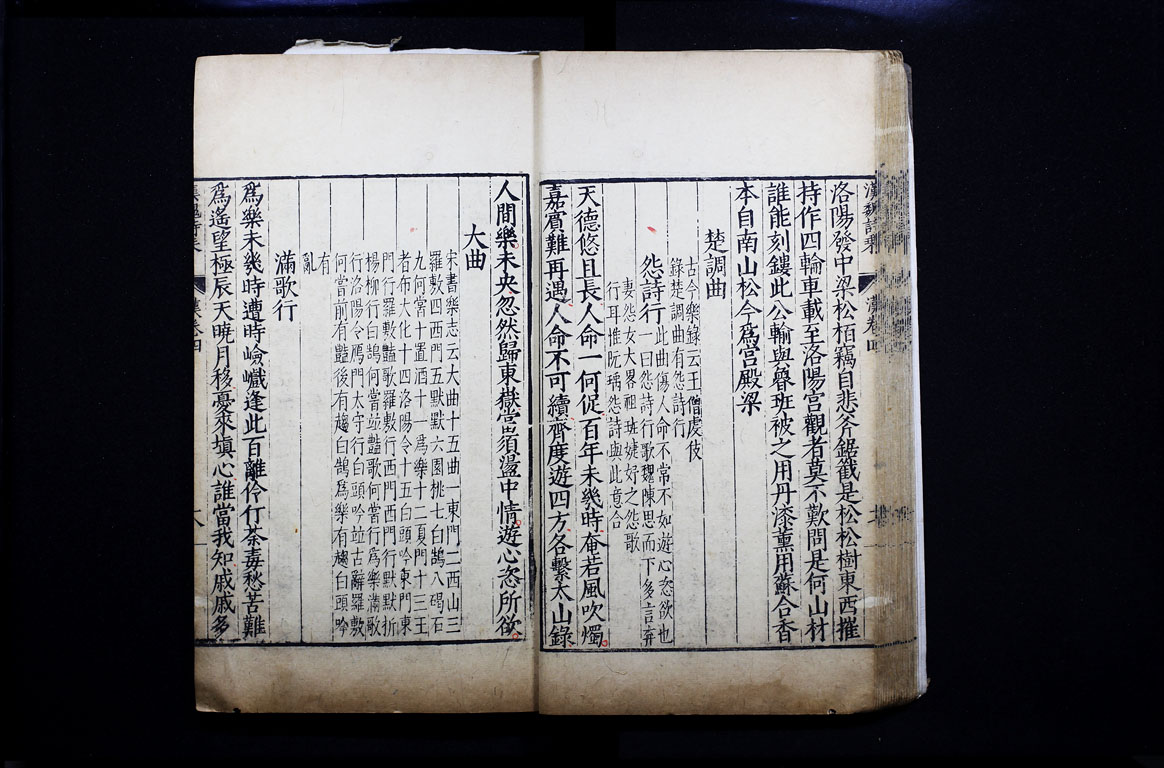 洛陽發中梁松栢竊自悲斧鋸截是松松樹東西摧
持作四輪車載至洛陽宫觀者莫不歎問是何山材
誰能刻鏤此公輸與魯班被之用丹漆薰用蘇合香
本自南山松今爲宫殿梁
楚調曲
古今樂錄云王僧虔伎
錄楚調曲有怨詩行
怨詩行
此曲傷人命不常不如遊心恣欲也
一曰怨詩行歌魏陳思而下多言弃
妻怨女大畧祖班婕妤之怨歌
行耳推阮瑀怨詩與此意合
天德悠且長人命一何促百年未幾時奄若風吹燭
嘉賓難再遇人命不可續齊度遊四方各繫太山錄
人間樂未央忽然歸東嶽當須盪中情遊心恣所欲
大曲
宋書樂志云大曲十五曲一東門二西山三
羅敷四西門五默默六園桃七白鵠八碣石
九何嘗十置酒十一爲樂十二夏門十三王
者布大化十四洛陽令十五白頭吟東門東
門行羅敷豔歌羅敷行西門西門行默默折
楊柳行白鵠何嘗竝豔歌何嘗行爲樂滿歌
行洛陽令鴈門太守行白頭吟竝古辭羅敷
何嘗前有豔後有趨白鵠爲樂有趨白頭吟
有
亂
滿歌行
爲樂未幾時遭時嶮巇逢此百離伶仃荼毒愁苦難
爲遙望極辰天曉月移憂來塡心誰當我知戚戚多
漢魏詩乘
漢卷四